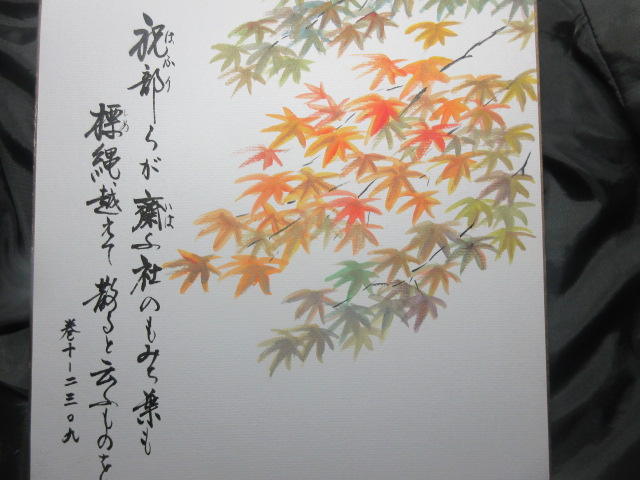 祝部らが齋ふ社のもみち葉も
標縄越えて散ると云ふものを
巻十-二三〇九
はふり
いは
しめ